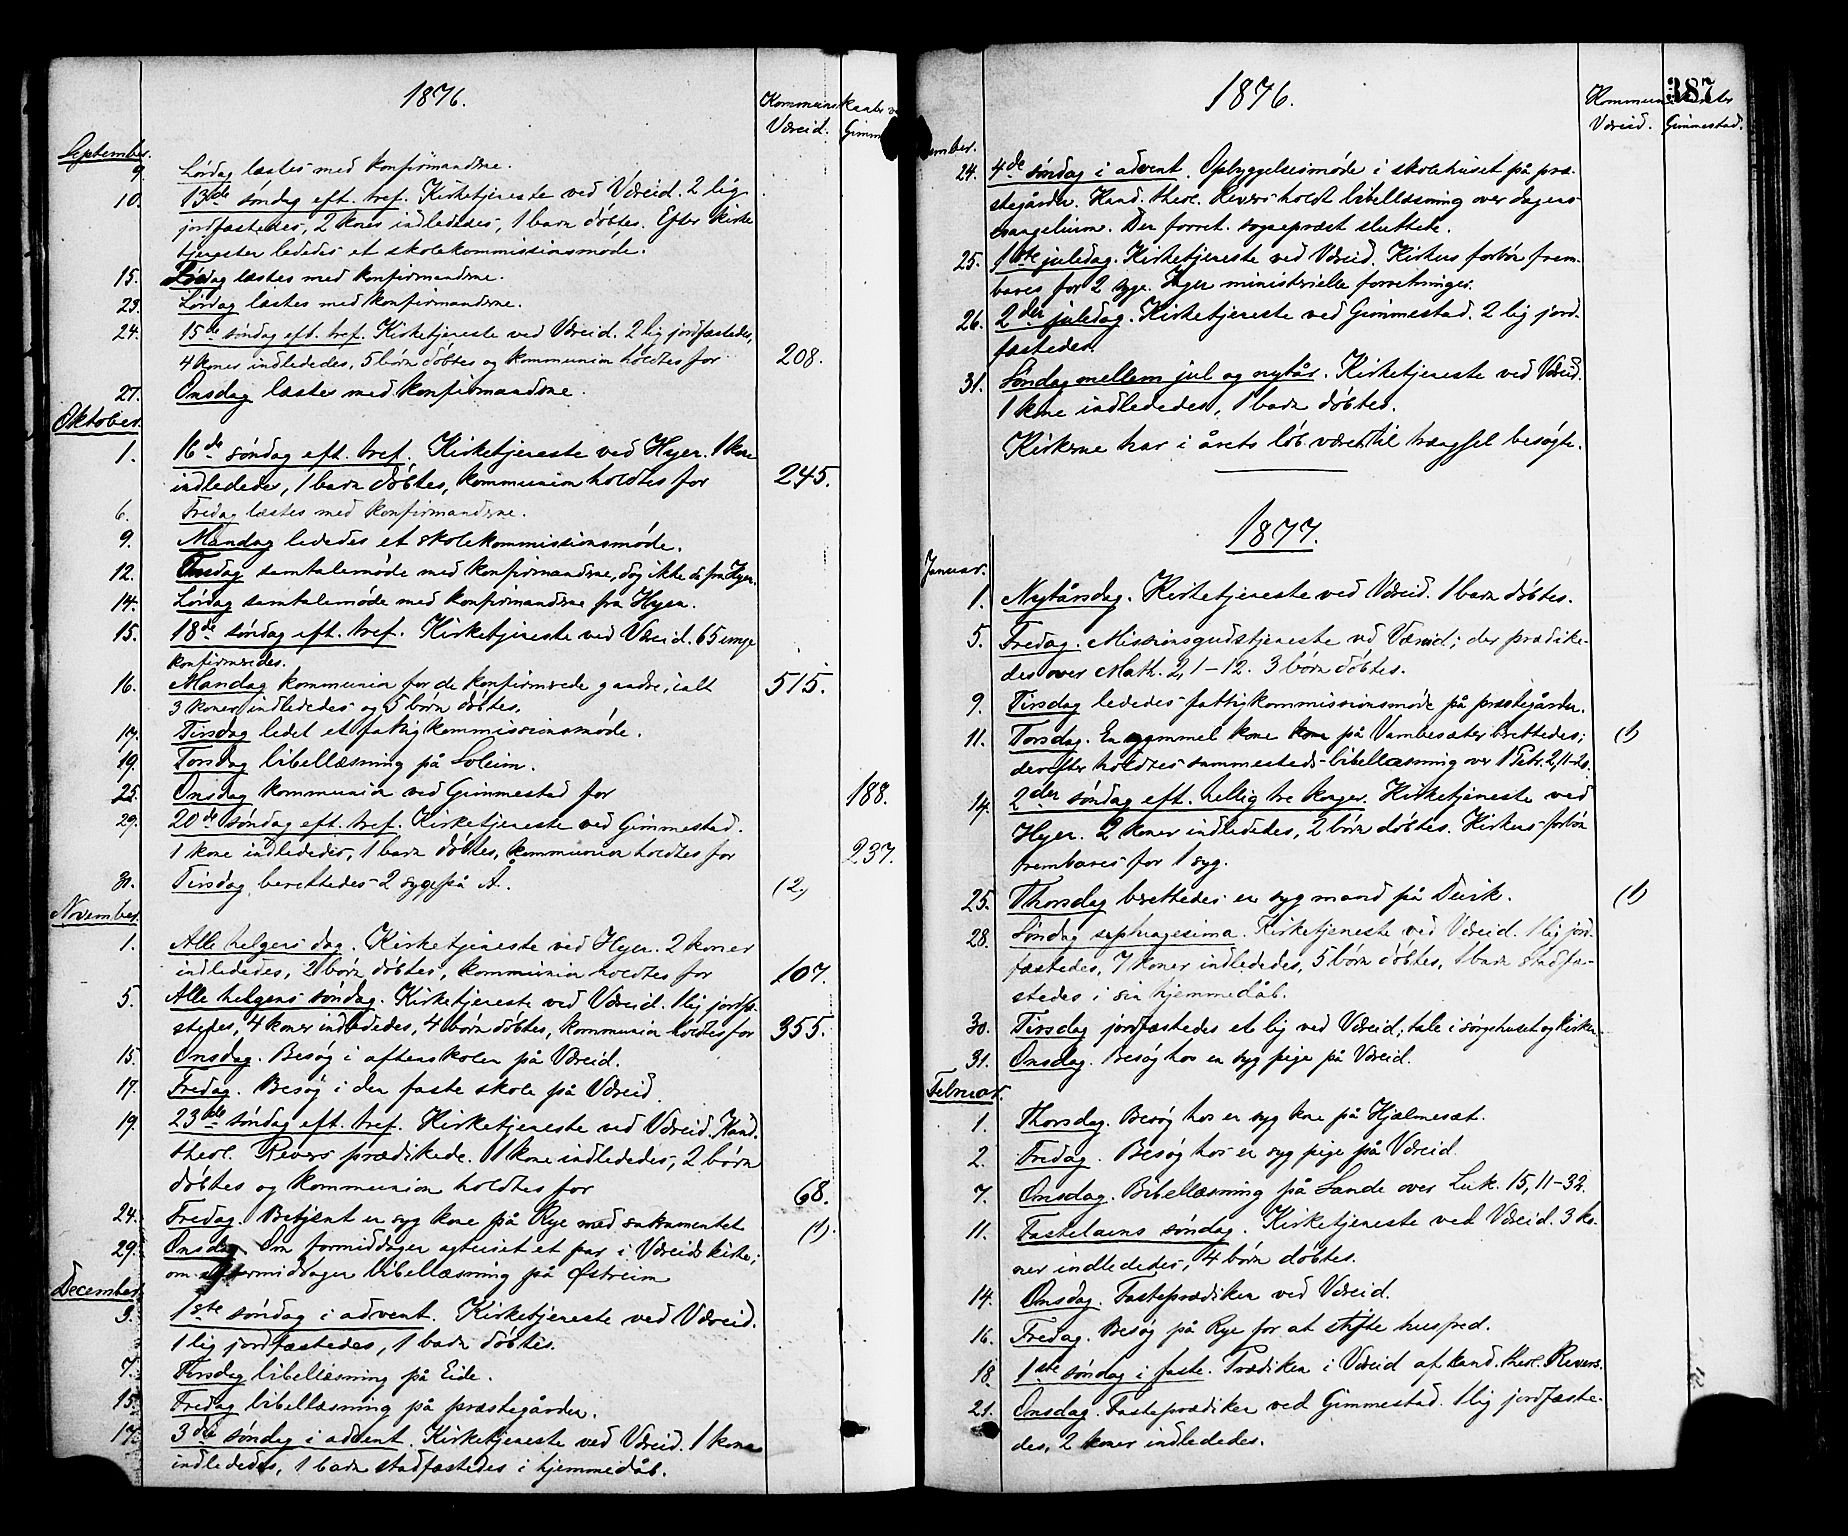 1876.
Kommunikanter v
Væreid. Gimm
September.
9. Lördag læstes med konfirmanderne.
10. 13de söndag eft. tref. Kirketjeneste ved Væreid. 2 lig
jordfæstedes, 2 koner indlededes, 1 barn döbtes. Efter kirke
tjenesten lededes et skolekommissionsmöde.
15. Lördag læstes med konfirmanderne.
23. Lördag læstes med konfirmanderne.
24. 15de söndag eft. tref. Kirketjeneste ved Væreid. 2 lig jordfæstedes,
4 koner indlededes, 5 börn döbtes og kommunion holdtes for 208.
27. Onsdag læstes med konfirmanderne.
Oktober.
1. 16de söndag eft. tref. Kirketjeneste ved Hyen. 1 kone
indlededes, 1 barn döbtes, kommunion holdtes for 245.
6. Fredag læstes med konfirmanderne.
9. Mandag lededes et skolekommissionsmöde.
12. Torsdag samtalemöde med konfirmanderne, dog ikke de fra Hyen.
14. Lördag samtalemöde med konfirmanderne fra Hyen.
15. 18de söndag eft. tref. Kirketjeneste ved Væreid. 65 unge
konfirmeredes.
16. Mandag kommunion for de konfirmerede g andre, ialt 515.
3 koner indlededes og 5 börn döbtes.
17. Tirsdag ledet et fattigkommissionsmöde.
19. Torsdag bibellæsning på Soleim.
25. Onsdag kommunion ved Gimmestad for 188.
29. 20de söndag eft. tref. Kirketjeneste ved Gimmestad.
1 kone indlededes, 1 barn döbtes, kommunion holdtes for 237.
31. Tirsdag berettedes 2 syge på Å. (2.)
November.
1. Alle helgens dag. Kirketjeneste ved Hyen. 2 koner
indlededes, 2 börn döbtes, kommunion holdtes for 107.
5. Alle helgens söndag. Kirketjeneste ved Væreid. 1 lig jordfæ-
stedes, 4 koner indlededes, 4 börn döbtes, kommunion holdtes for 355.
15. Onsdag. Besög i aftenskolen på Væreid.
17. Fredag. Besög i den faste skole på Væreid.
19. 23de söndag eft. tref. Kirketjeneste ved Væreid. Kand.
theol. Revers prædikede. 1 kone indlededes, 2 börn
döbtes og kommunion holdtes for 68.
24. Fredag. Betjent en syg kone på Rye med sakramentet (1).
29. Onsdag. Om formiddagen ægteviet et par i Væreids kirke;
om eftermiddagen bibellæsning på Östreim
December.
3. 1ste söndag i advent. Kirketjeneste ved Væreid.
1 lig jordfæstedes, 1 barn döbtes.
7. Torsdag bibellæsning på Eide.
15. Fredag bibellæsning på præstegården.
17. 3die söndag i advent. Kirketjeneste ved Væreid. 1 kone
indlededes, 1 barn stadfæstedes i hjemmedåb.
1876.
387
Kommunikanter
Væreid. Gimmestad.
ember.
24. 4de söndag i advent. Opbyggelsesmöde i skolehuset på præ-
stegården. Kand. theol. Revers holdt bibellæsning over dagens
evangelium. Den forret. sognepræst sluttede.
25. 1ste juledag. Kirketjeneste ved Væreid. Kirkens forbön frem-
bares for 2 syge. Ingen ministerielle forretninger.
26. 2den juledag. Kirketjeneste ved Gimmestad. 2 lig jord-
fæstedes.
31. Söndag mellem jul og nytår. Kirketjeneste ved Væreid.
1 kone indlededes, 1 barn döbtes.
Kirkerne har i årets löb været til trængsel besögte.
1877.
Januar.
1. Nytårsdag. Kirketjeneste ved Væreid. 1 barn döbtes.
5. Fredag. Missionsgudstjeneste ved Væreid; der prædike-
des over Math. 2, 1-12. 3 börn döbtes.
9. Tirsdag lededes fattigkommissionsmöde på præstegården.
11. Torsdag. En gammel kone på Vambesæter berettedes; (1)
derefter holdtes sammesteds bibellæsning over 1 Petr. 2, 11-20.
14. 2den söndag eft. hellig tre konger. Kirketjeneste ved
Hyen. 2 koner indlededes, 2 börn döbtes. Kirkens forbön
frembares for 1 syg.
25. Thorsdag berettedes en syg mand på Devik. (1)
28. Söndag septuagesima. Kirketjeneste ved Væreid. 1 lig jord-
fæstedes, 7 koner indlededes, 5 börn döbtes, 1 barn stadfæ-
stedes i sin hjemmedåb.
30. Tirsdag jordfæstedes et lig ved Væreid; tale i sörgehuset og kirken.
31. Onsdag. Besög hos en syg pige på Væreid.
Februar.
1. Thorsdag. Besög hos en syg kone på Hjælmeset.
2. Fredag. Besög hos en syg pige på Væreid.
7. Onsdag. Bibellæsning på Sande over Luk. 15, 11-32.
11. Fastelavns söndag. Kirketjeneste ved Væreid. 3 ko-
ner indlededes, 4 börn döbtes.
14. Onsdag. Fasteprædiken ved Væreid.
16. Fredag. Besög på Rye for at stifte husfred.
18. 1ste söndag i faste. Prædiken i Væreid af kand. theol. Revers.
21. Onsdag. Fasteprædiken ved Gimmestad. 1 lig jordfæste-
des, 2 koner indlededes.